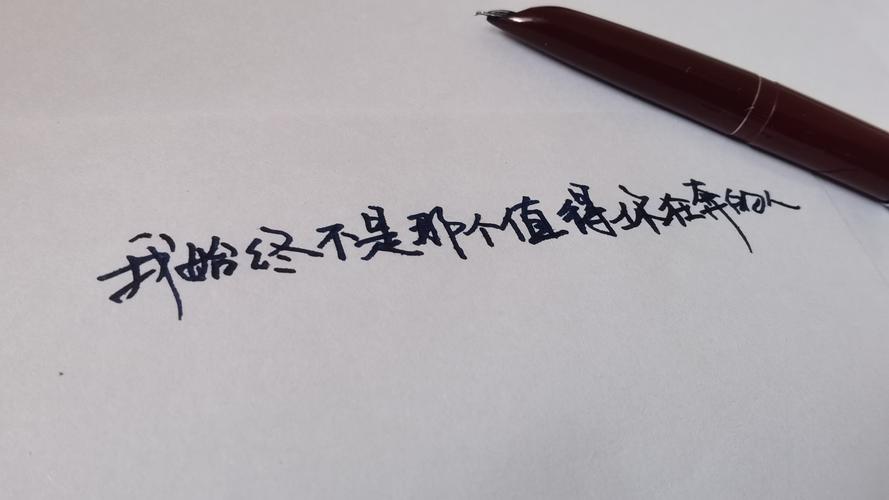 我始终不是那个值得你狂奔的人